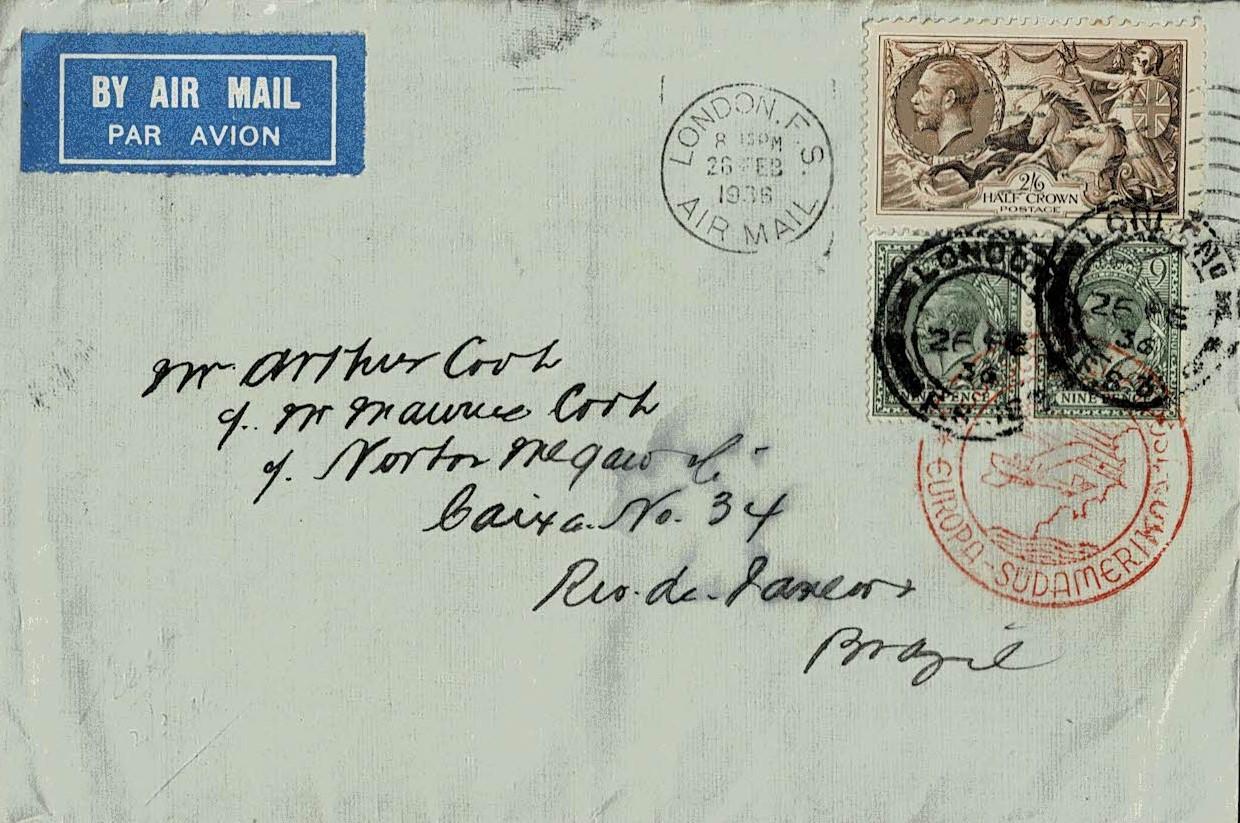 BY AIR MAIL
PAR AVION
LONDON. F. S.
8 15PM
26 FEB
1936
AIR MAIL
2/6
HALF CROWN
POSTAGE
LONDON
26 FE
36
LON
9
26
36
NINE
PENCE
EUROPA-SÜDAMERIKA
Mr. Arthur Cook
c/. Mr Maurice Cook
c/. Norton Megaw &
Caixa. No. 34
Rio. de. Janeiro
Brazil